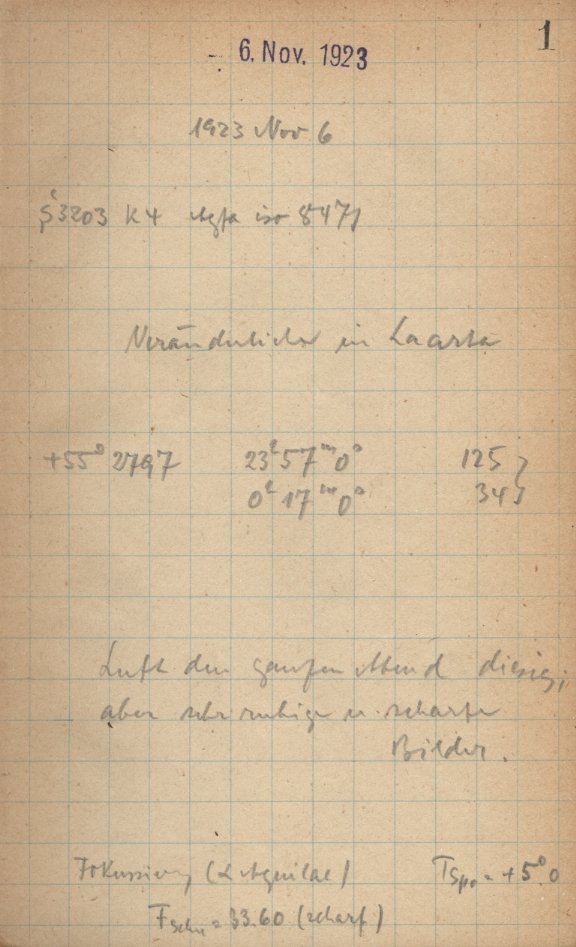 1
6. Nov. 1923
1923 Nov 6
S 3203 K4 Agfa iso 8471
Veränderlicher in Lacerta
+55° 2797 23h 57m 0s 125
0h 17m 0s 34
Luft den ganzen Abend diesig,
aber sehr ruhige u. scharfe
Bilder.
Fokussierung (α Aquilae) T = +5°.0
F = 33.60 (scharf)